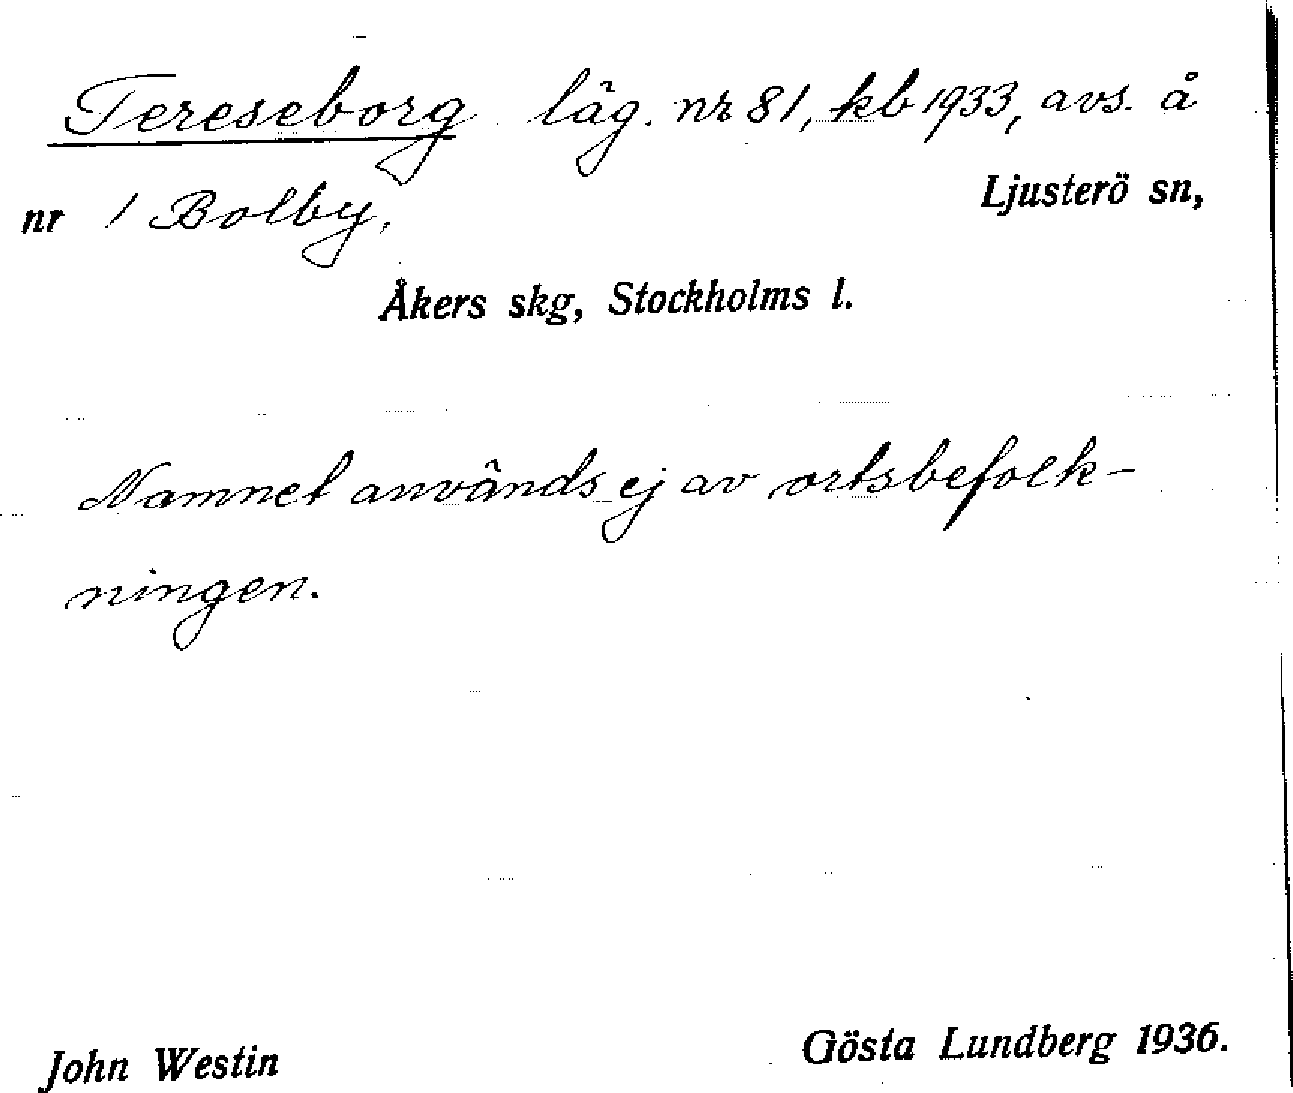 Tereseborg läg. nr 81, kb 1933, avs. å
nr 1 Bolby, Ljusterö sn,
Åkers skg, Stockholms l.
Namnet används ej av ortsbefolk-
ningen.
John Westin Gösta Lundberg 1936.